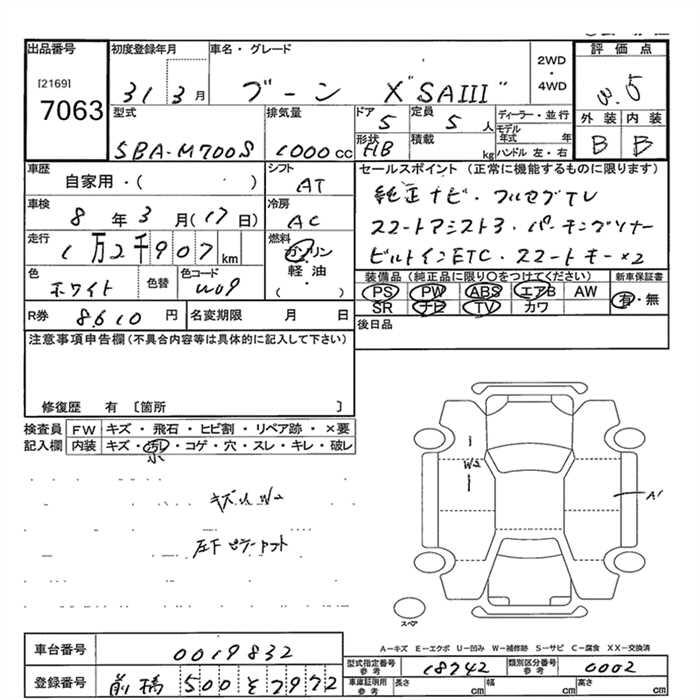 出品番号
[2169]
7063
初度登録年月
31 3 月
車名・グレード
ブーン X "SAIII"
2WD
・
4WD
評価点
3.5
外装 内装
B B
型式
5BA-M700S
排気量
1000 cc
ドア
5
定員
5 人
形状
HB
積載
kg
ディーラー・並行
モデル年式 年
ハンドル 左・右
車歴
自家用・( )
シフト
AT
車検
8 年 3 月(17日)
冷房
AC
走行
1万2千907 km
燃料
ガソリン
軽油
( ・ )
色
ホワイト
色替
色コード
W09
セールスポイント (正常に機能するものに限ります)
純正ナビ・フルセグTV
スマートアシスト3・パーキングソナー
ビルトインETC・スマートキー×2
装備品 (純正品に限り○をつけてください)
PS PW ABS エアB AW
SR ナビ TV カワ
新車保証書
有・無
R券
8610 円
名変期限 月 日
後日品
注意事項申告欄(不具合内容等は具体的に記入して下さい)
修復歴 有 〔箇所 〕
検査員記入欄
FW キズ・飛石・ヒビ割・リペア跡・×要
内装 キズ・汚レ・コゲ・穴・スレ・キレ・破レ
小
キズ小W2
左F ピラーカット
W2
A1
スペア
A-キズ E-エクボ U-凹み W-補修跡 S-サビ C-腐食 XX-交換済
車台番号
0019832
登録番号
前橋 500 そ 7972
型式指定番号
参考
18742
類別区分番号
参考
0002
車庫証明用
参考
長さ cm
幅 cm
高さ cm